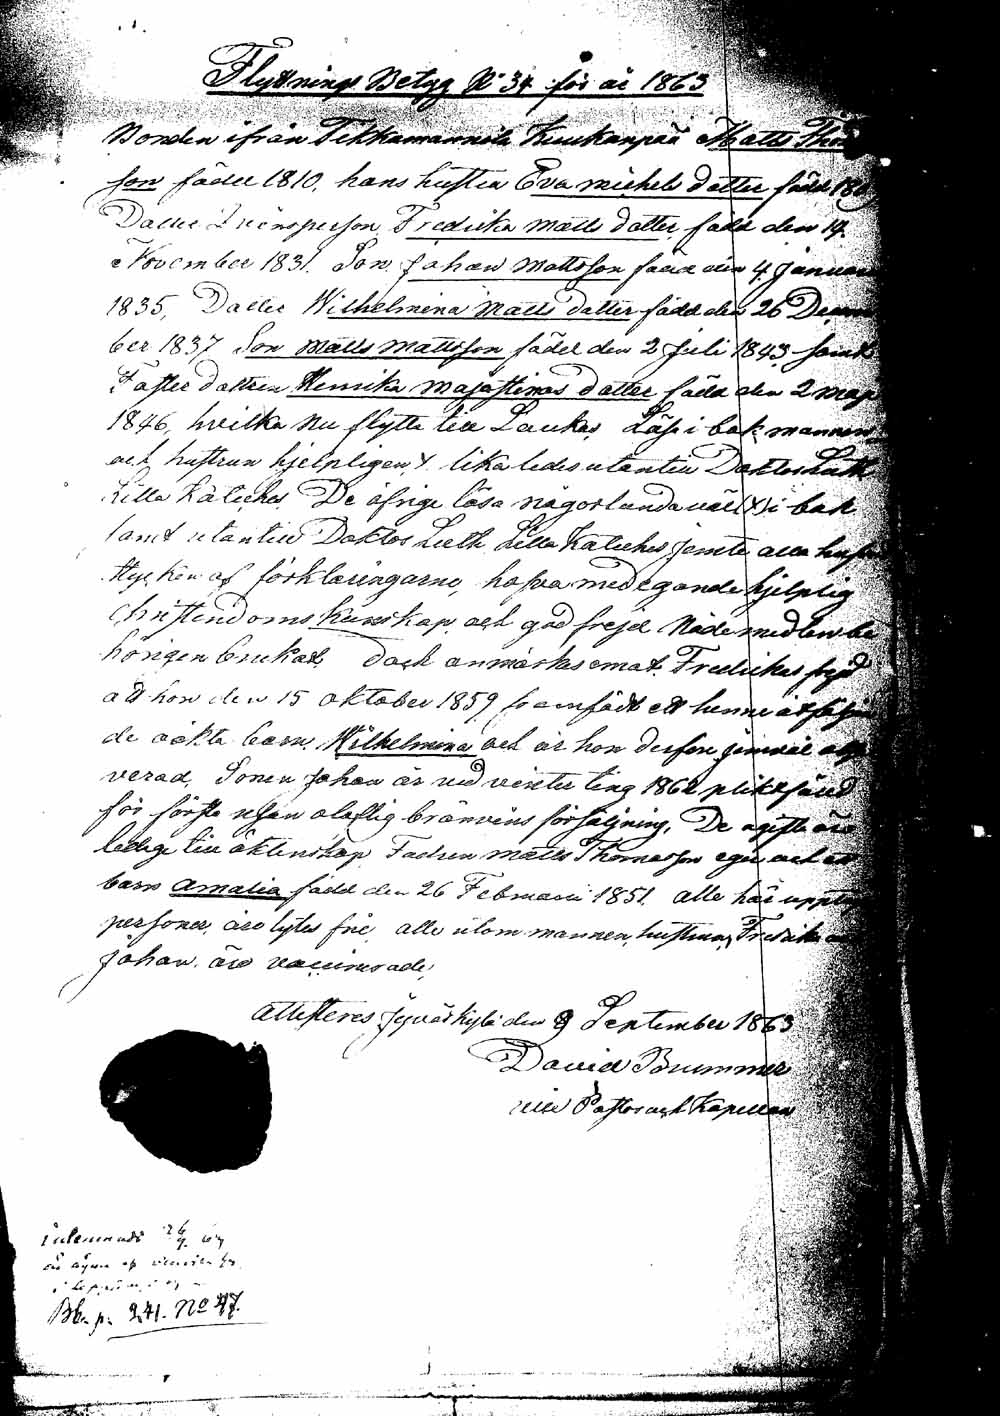 Flyttnings Betyg No 34 för år 1863
Bonden ifrån Tikkamannila Kuukanpää Matts Thomas
son född 1810, hans hustru Eva Michels dotter född
Dotter Qvinsperson Fredrika Matts dotter född den 14
November 1831. Son Johan Mattsson född den 4 Januari
1835, Dotter Wilhelmina Matts dotter född den 26 Decem
ber 1837 Son Matts Mattsson född den 2 Juli 1843 samt
Foster dottren Henrika Majastinas dotter född den 2 maji
1846, hvilka nu flytta till Laukas, Läse i bok mannen
och hustrun hjelpligen, lika ledes utantill Doktor Luth
Lilla Kateches. De öfrige läsa någorlunda väl (x) i bok
samt utantill Doktor Luth Lilla Kateches jemte alla hufvud
stycken af förklaringarne, hafva medegande hjelplig
Christendoms kunskap och god frejd Nådemedlen be
hörigen brukat dock anmärkes om Fredrikas frejd
att hon den 15 oktober 1859 framfödt ett henne åtföljan
de oäkta barn, Wilhelmina och är hon derföre
verad, Sonen Johan är vid vinter ting 1862 pliktfälld
för första resan olaglig bränvins försäljning, De ogifta äro
ledige till äktenskap Fadren Matts Thomasson eger och ett
barn Amalia född den 26 Februarii 1851. alle här uppt
personer, äro lytes frie, alle utom mannen, hustrun, Fredrika och
Johan, äro vaccinerade,
Attesteres Jyväskylä den 9 September 1863
David Brummer
vice Pastor och Kapellan
inlemnads 26/9 63
Bb. p. 241. No 47.